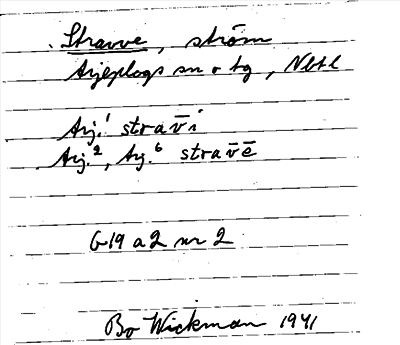 Stravve, ström
Arjeplogs sn o tg, Nbtl
Arj.¹ strav̄i
Arj.², Arj.⁶ strav̄ē
G19 a2 nr 2
Bo Wickman 1941